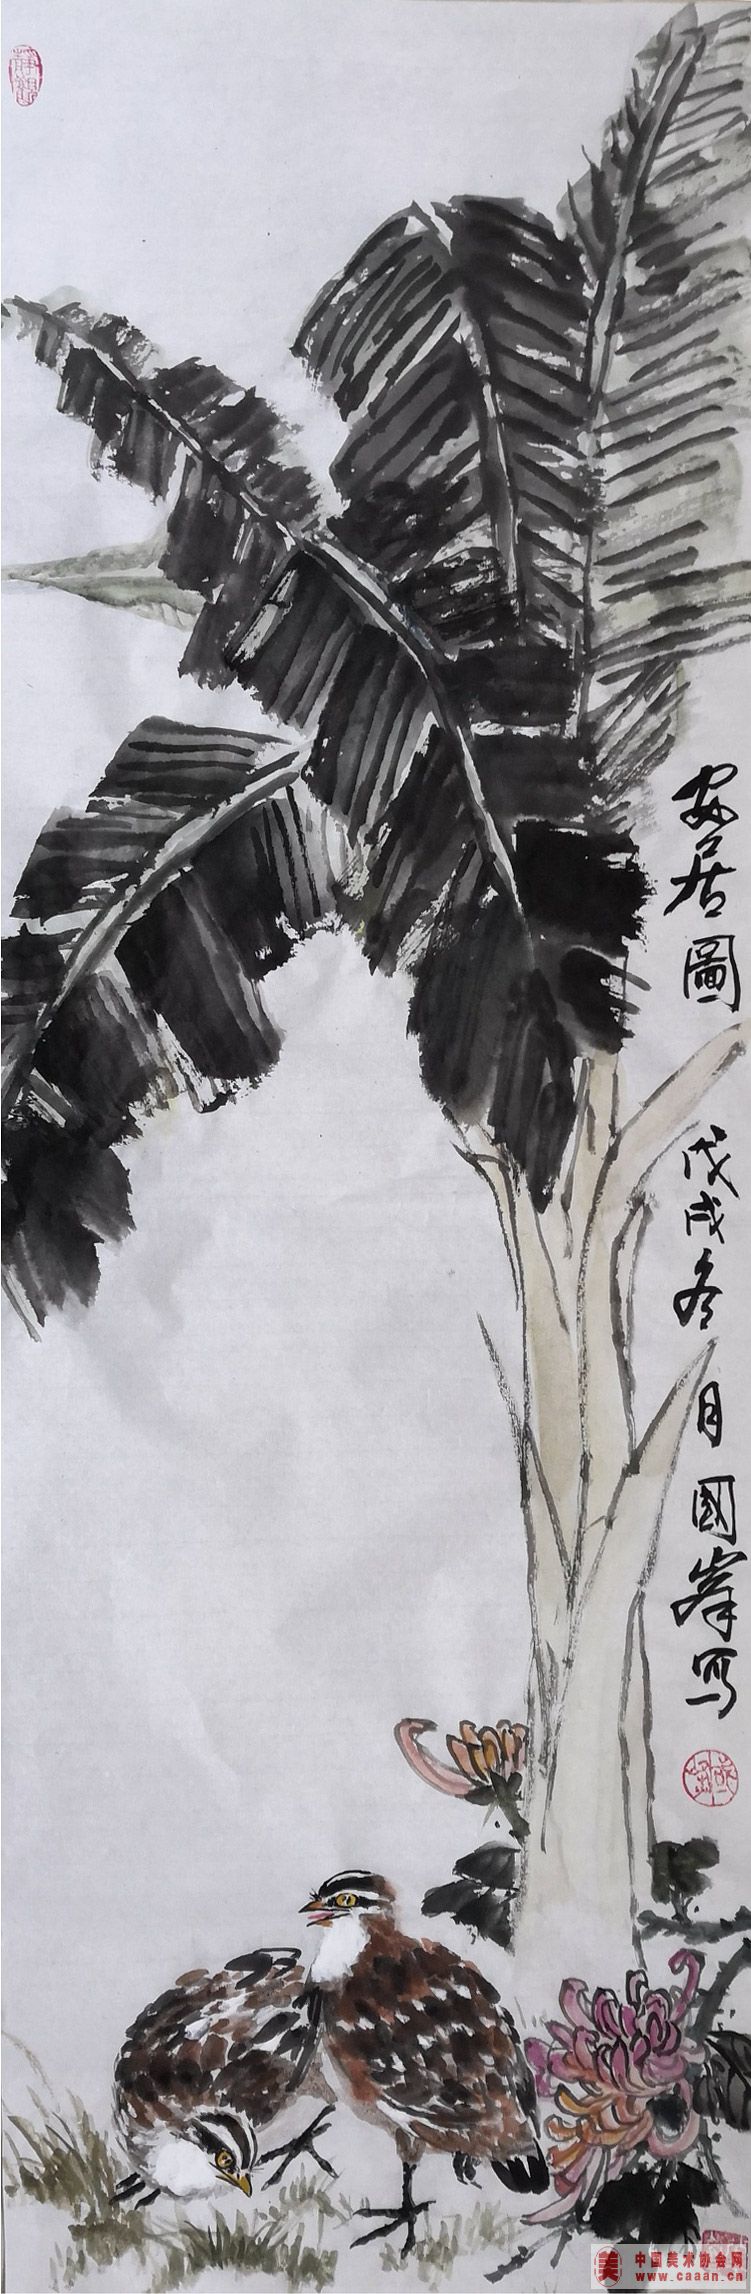 安居圖 戊戌冬月國峯写
中国美术协会网
www.caaan.cn